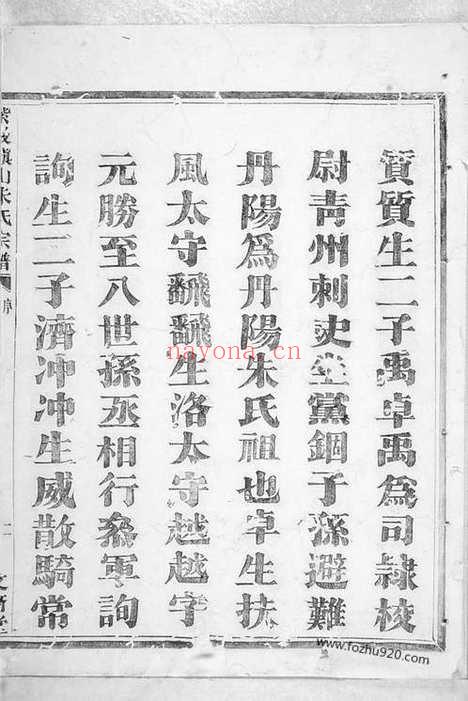 賓質生二子禹卓禹爲司隸校
尉青州刺史坐黨錮子孫避難
丹陽爲丹陽朱氏祖也卓生扶
風太守飜飜生洛太守越越字
元勝至八世孫丞相行叅軍詢
詢生二子濟冲冲生威散騎常
山朱氏宗譜 序
二
nayona.cn
www.fozhu920.com